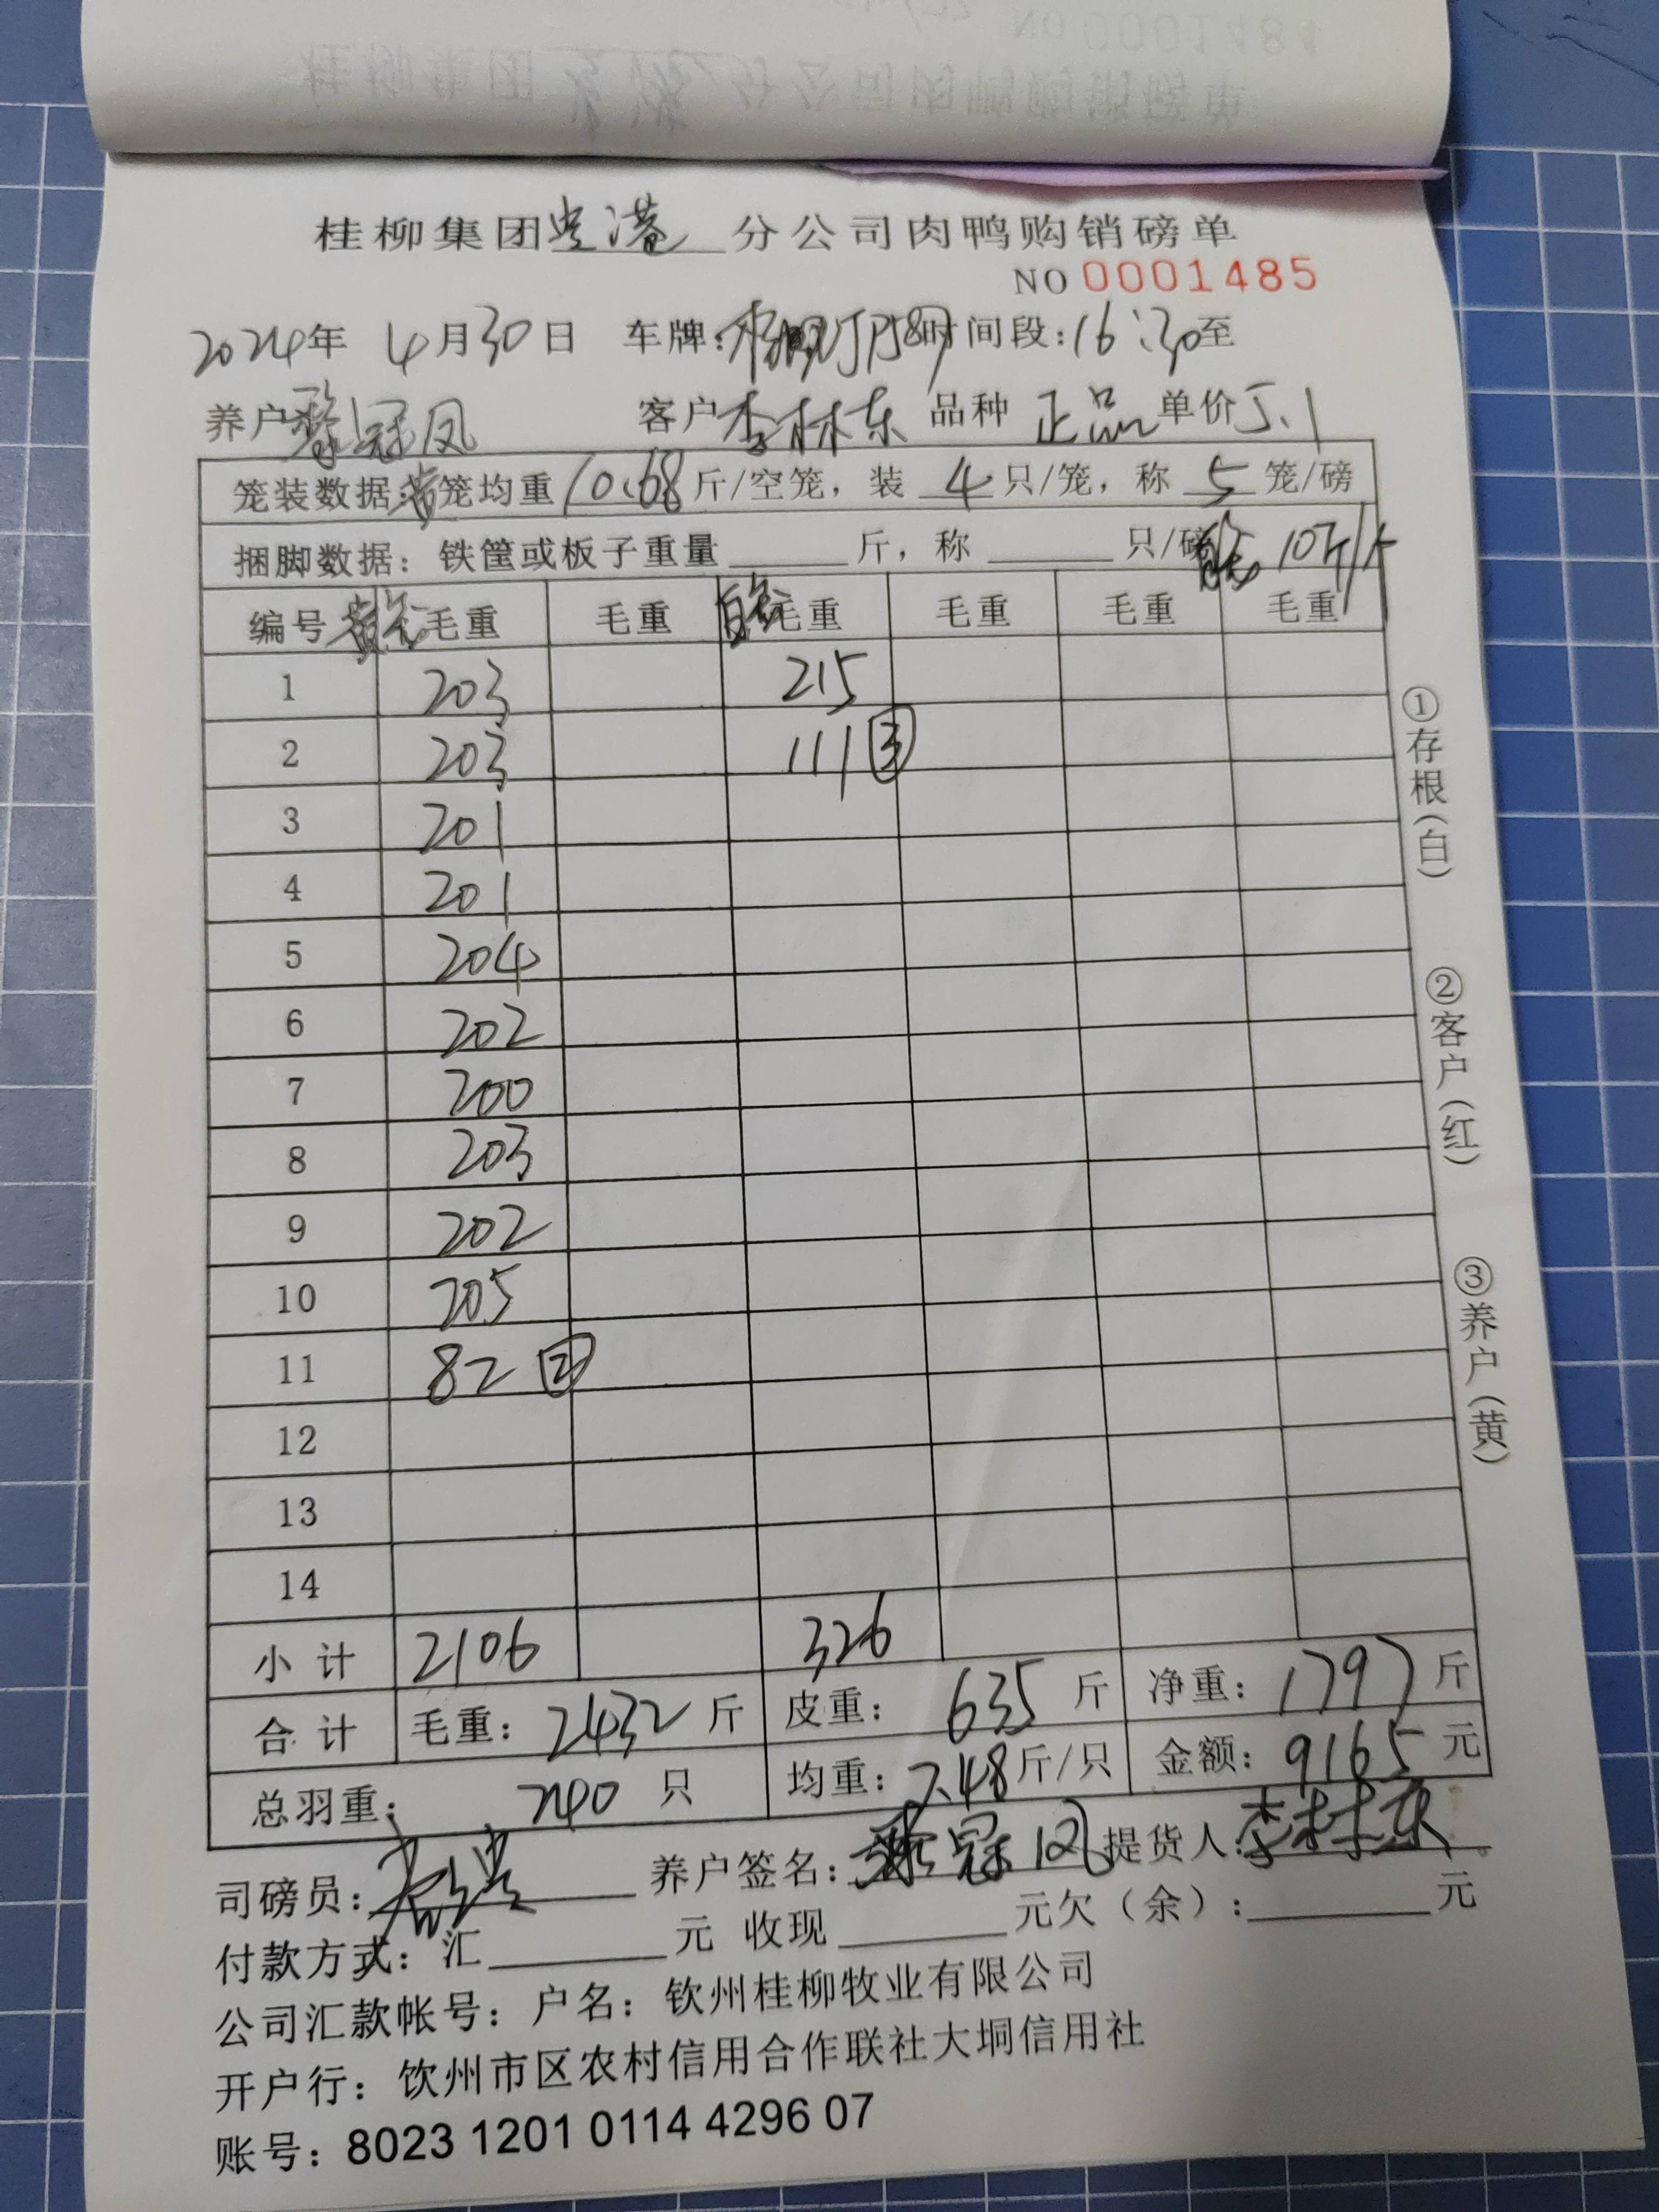 NO 0001484
桂柳集团 分公司肉鸭购销磅单
桂柳集团贵港分公司肉鸭购销磅单
NO 0001485
2024年 4月30日 车牌: 时间段:16:30至
养户 冠凤 客户李林东 品种 正品 单价5.1
笼装数据:黄笼均重10.68斤/空笼，装 4 只/笼，称 5 笼/磅
捆脚数据：铁筐或板子重量 斤，称 只/磅 10斤/个
编号 黄笼 毛重 毛重 白笼 毛重 毛重 毛重 毛重
1 203 215
2 203 111 ③
3 201
4 201
5 204
6 202
7 200
8 203
9 202
10 205
11 82 ②
12
13
14
小计 2106 326
合计 毛重：2432斤 皮重：635斤 净重：1797斤
总羽重： 240只 均重：7.48斤/只 金额：9165元
司磅员： 养户签名： 冠凤 提货人:李林东
付款方式：汇 元 收现 元欠（余）: 元
公司汇款帐号：户名：钦州桂柳牧业有限公司
开户行：钦州市区农村信用合作联社大垌信用社
账号：8023 1201 0114 4296 07
①存根(白)
②客户(红)
③养户(黄)